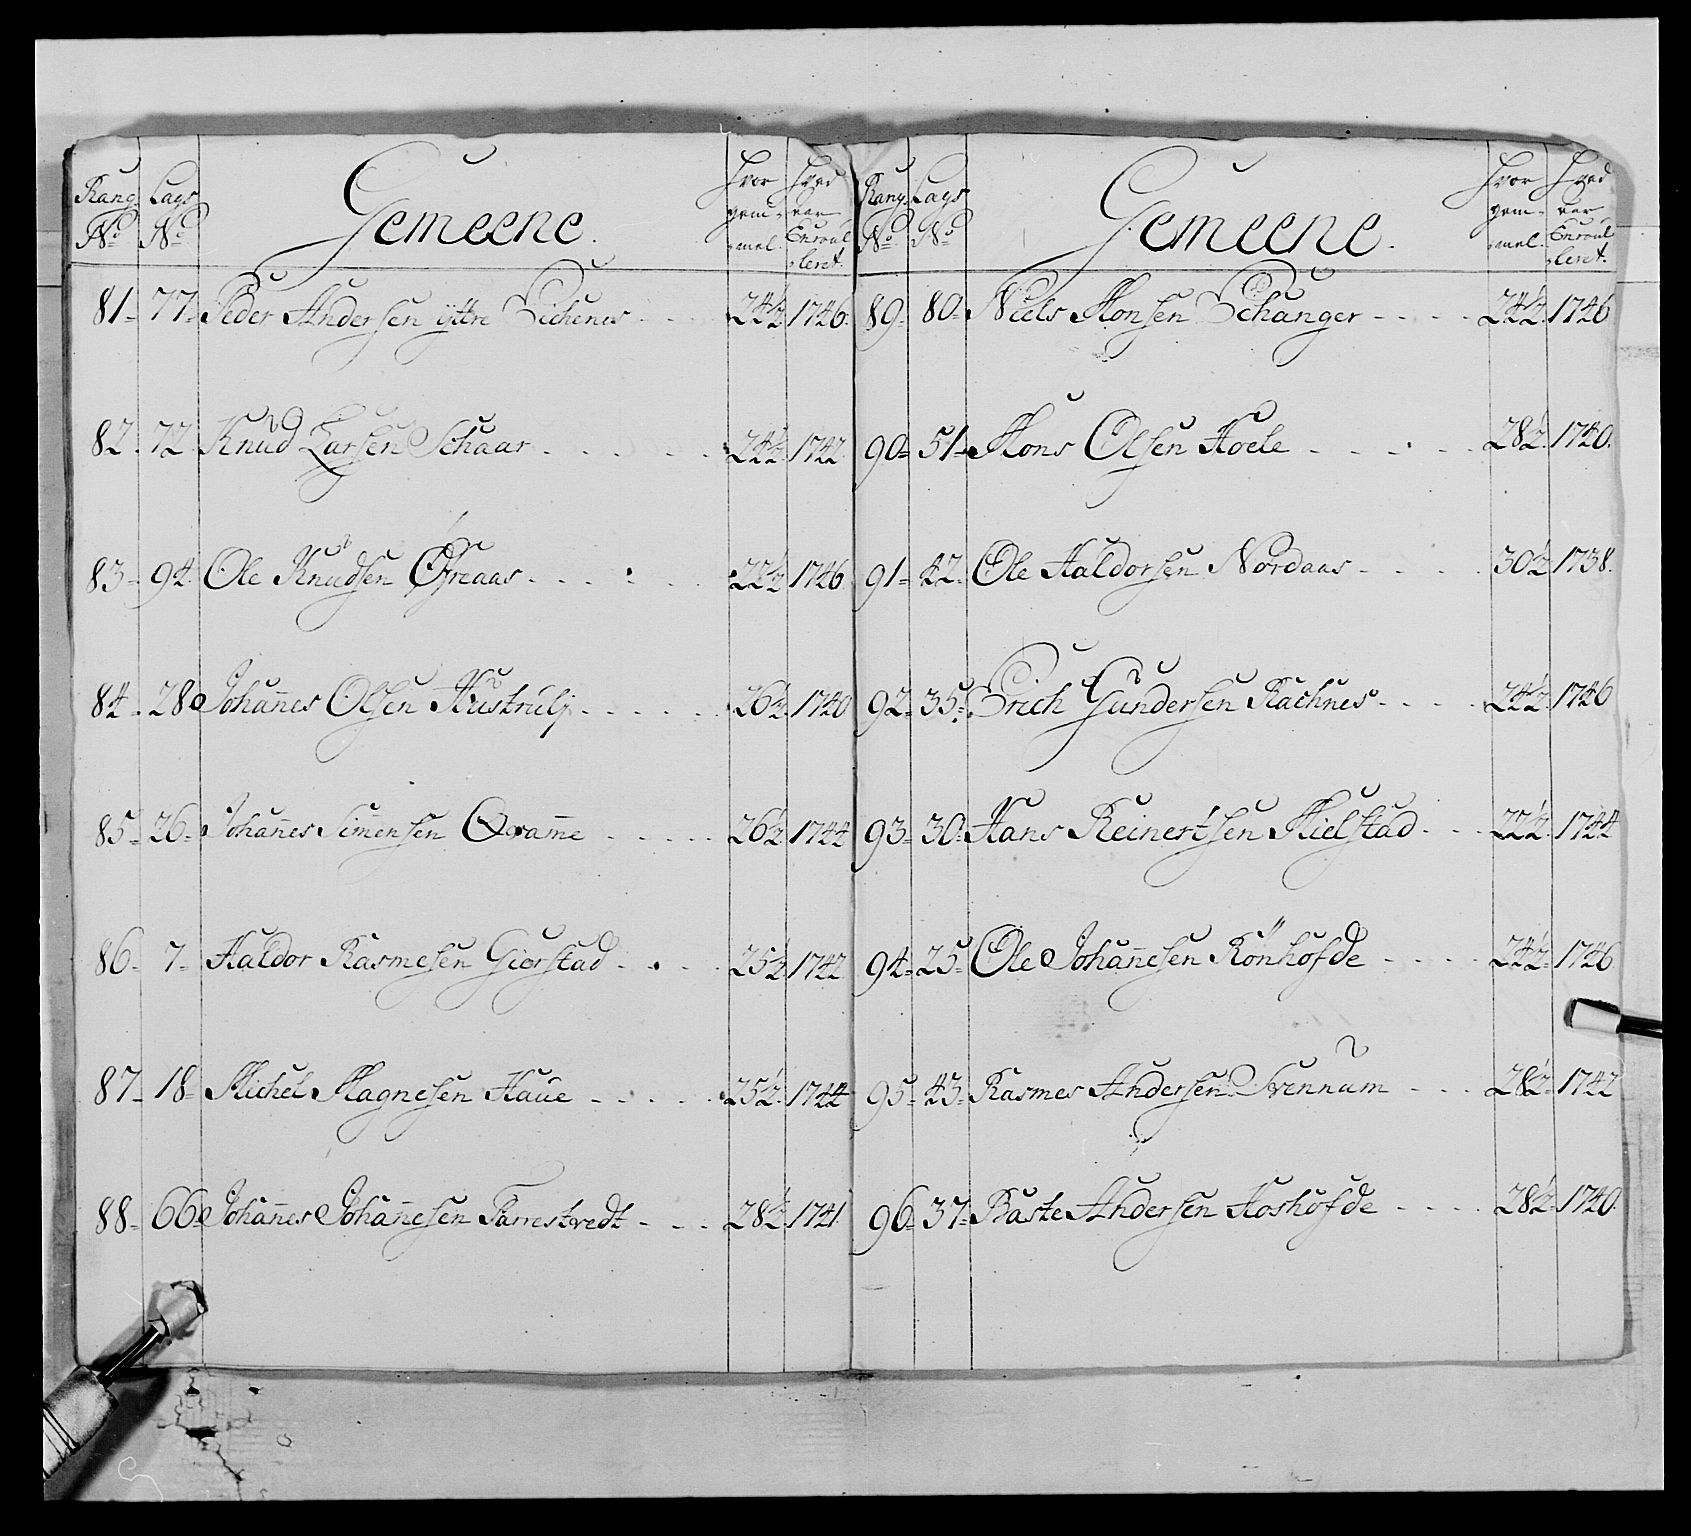 Rang No Lags No Gemeene. Hvor gam-mel. Hvad aar Enroul-leret.
81 - 77 - Peder Andersen yttre Eichenes - - - 24½ 1746.
82 - 72 Knud Larsen Schaar - - - 24½ 1742.
83 - 94. Ole Knudsen Øfreaas - - - 22½ 1746
84 - 28 Johan̄es Olsen Hustrulj - - - 26½ 1740
85 - 26 - Johan̄es Simensen Qvam̄e - - - 26½ 1744
86 - 7 - Haldor Rasmesen Gierstad - - - 25½ 1742
87 - 18 - Michel Magnesen Haue - - - 25½ 1744
88 - 66 Johan̄es Johan̄esen Tamstvedt - - - 28½ 1741.
Rang No Lags No Gemeene. Hvor gam-mel. Hvad aar Enroul-leret.
89 - 80 - Niels Monsen Echanger - - - 24½ 1746
90 - 51 - Mons Olsen Hoele - - - 28½ 1740.
91 - 42. Ole Haldorsen Nordaas - - - 30½ 1738.
92 - 35. Erich Gundersen Rachnes - - - 24½ 1746
93 - 30. Hans Reinertsen Mielstad - - - 22½ 1744
94 - 25 - Ole Johan̄esen Rönhofde - - - 24½ 1746
95 - 43 - Rasmes Andersen Svennum - - - 28½ 1742
96 - 37 - Baste Andersen Hoshofde - - - 28½ 1740.